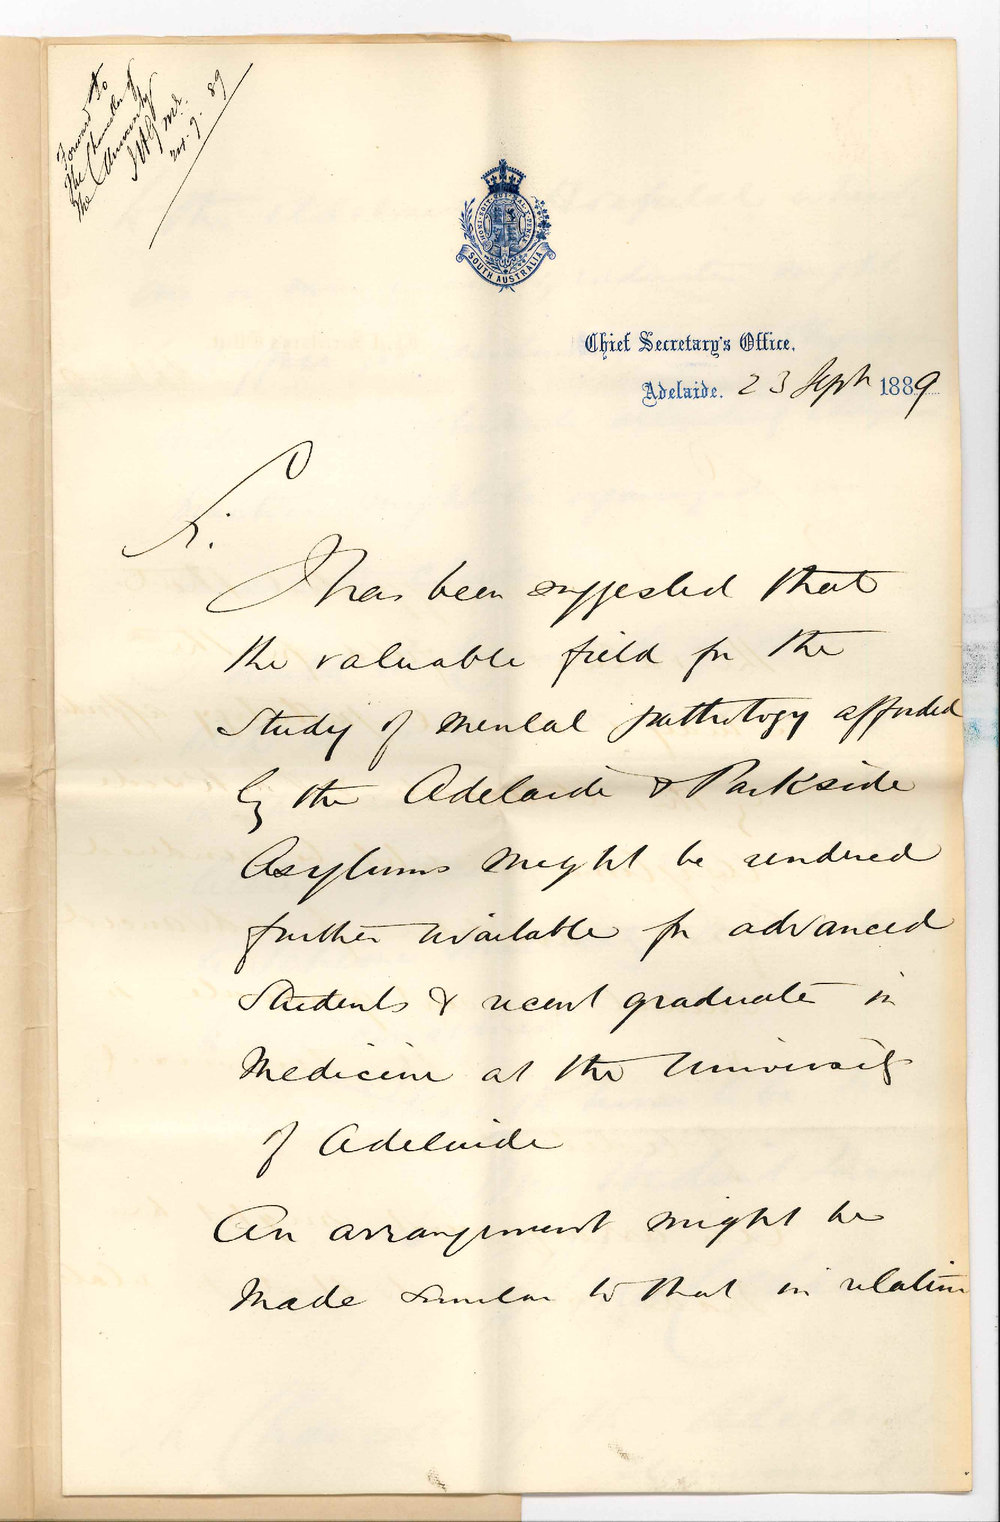 Forward to
The Chancellor of
the University
24.9.89
HONI SOIT QUI MAL Y PENSE
SOUTH AUSTRALIA
Chief Secretary's Office,
Adelaide. 23 Sept 1889
Sir.
It has been suggested that
the valuable field for the
study of mental pathology afforded
by the Adelaide & Parkside
Asylums might be rendered
further available for advanced
Students & recent graduates in
Medicine at the University
of Adelaide
An arrangement might be
made similar to that in relation